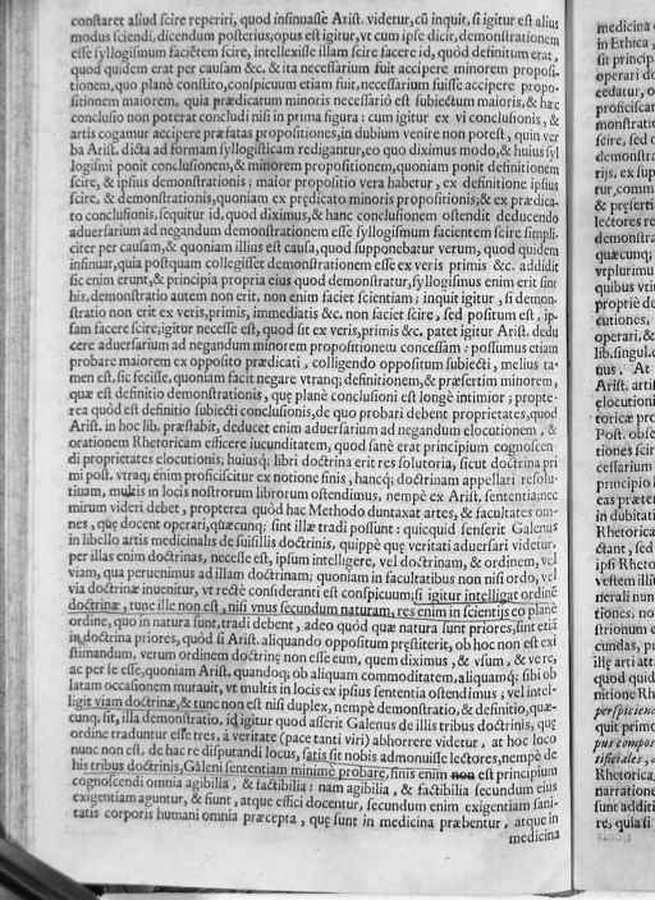 constaret aliud scire reperiri, quod insinuasse Arist. videtur, cũ inquit, si igitur est alius
modus sciendi, dicendum posterius, opus est igitur, vt cum ipse dicit, demonstrationem
esse syllogismum faciẽtem scire, intellexisse illam scire facere id, quòd definitum erat,
quod quidem erat per causam &c. & ita necessarium fuit accipere minorem proposi-
tionem, quo planè constito, conspicuum etiam fuit, necessarium fuisse accipere propo-
sitionem maiorem, quia prædicatum minoris necessariò est subiectum maioris, & hæc
conclusio non poterat concludi nisi in prima figura: cum igitur ex vi conclusionis, &
artis cogamur accipere præfatas propositiones, in dubium venire non potest, quin ver
ba Arist. dicta ad formam syllogisticam redigantur, eo quo diximus modo, & huius syl
logismi ponit conclusionem, & minorem propositionem, quoniam ponit definitionem
scire, & ipsius demonstrationis; maior propositio vera habetur, ex definitione ipsius
scire, & demonstrationis, quoniam ex prędicato minoris propositionis; & ex prædica-
to conclusionis, sequitur id, quod diximus, & hanc conclusionem ostendit deducendo
aduersarium ad negandum demonstrationem esse syllogismum facientem scire simpli-
citer per causam, & quoniam illius est causa, quod supponebatur verum, quod quidem
insinuat, quia postquam collegisset demonstrationem esse ex veris primis &c. addidit
sic enim erunt, & principia propria eius quod demonstratur, syllogismus enim erit sint
his, demonstratio autem non erit, non enim faciet scientiam; inquit igitur, si demon-
stratio non erit ex veris, primis, immediatis &c. non faciet scire, sed positum est, ip-
sam facere scire, igitur necesse est, quod sit ex veris, primis &c. patet igitur Arist. dedu
cere aduersarium ad negandum minorem propositionem concessam: possumus etiam
probare maiorem ex opposito prædicati, colligendo oppositum subiecti, melius ta-
men est, sic fecisse, quoniam facit negare vtranq; definitionem, & præsertim minorem,
quæ est definitio demonstrationis, quę planè conclusioni est longè intimior; propte-
rea quòd est definitio subiecti conclusionis, de quo probari debent proprietates, quod
Arist. in hoc lib. præstabit, deducet enim aduersarium ad negandum elocutionem, &
orationem Rhetoricam efficere iucunditatem, quod sanè erat principium cognoscen
di proprietates elocutionis, huiusq; libri doctrina erit resolutoria, sicut doctrina pri
mi post. vtraq; enim proficiscitur ex notione finis, hancq; doctrinam appellari resolu-
tiuam, multis in locis nostrorum librorum ostendimus, nempè ex Arist. sententia; nec
mirum videri debet, propterea quòd hac Methodo duntaxat artes, & facultates om-
nes, quę docent operari, quæcunq; sint illæ tradi possunt: quicquid senserit Galenus
in libello artis medicinalis de suisillis doctrinis, quippè quę veritati aduersari videtur,
per illas enim doctrinas, necesse est, ipsum intelligere, vel doctrinam, & ordinem, vel
viam, qua peruenimus ad illam doctrinam; quoniam in facultatibus non nisi ordo, vel
via doctrinæ inuenitur, vt rectè consideranti est conspicuum; si igitur intelligat ordinẽ
doctrinæ, tunc ille non est, nisi vnus secundum naturam, res enim in scientijs eo planè
ordine, quo in natura sunt, tradi debent, adeo quòd quæ natura sunt priores, sint etiã
in doctrina priores, quòd si Arist. aliquando oppositum pręstiterit, ob hoc non est exi
stimandum, verum ordinem doctrinę non esse eum, quem diximus, & vsum, & vere,
ac per se esse, quoniam Arist. quandoq; ob aliquam commoditatem, aliquamq; sibi ob
latam occasionem mutauit, vt multis in locis ex ipsius sententia ostendimus; vel intel-
ligit viam doctrinæ, & tunc non est nisi duplex, nempè demonstratio, & definitio, quæ-
cunq; sit, illa demonstratio, id igitur quod asserit Galenus de illis tribus doctrinis, quę
ordine traduntur esse tres, à veritate (pace tanti viri) abhorrere videtur, at hoc loco
nunc non est, de hac re disputandi locus, satis sit nobis admonuisse lectores, nempè de
his tribus doctrinis, Galeni sententiam minimè probare, finis enim non est principium
cognoscendi omnia agibilia, & factibilia: nam agibilia, & factibilia secundum eius
exigentiam aguntur, & fiunt, atque effici docentur, secundum enim exigentiam sani-
tatis corporis humani omnia præcepta, quę sunt in medicina præbentur, atque in
medicina